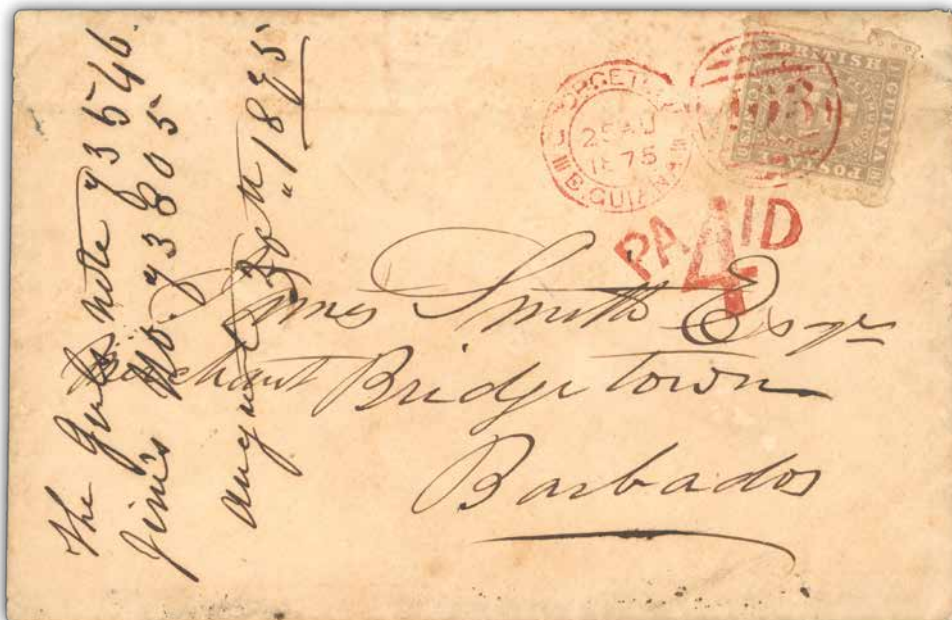 The Guns note 93546.
Jim's No. 93805
August 30th "1875
GEORGETOWN
25 AU
1875
B. GUIANA
BRITISH
GUIANA
POSTAGE
PAID
4
James Smith Esqr
Merchant Bridgetown
Barbados